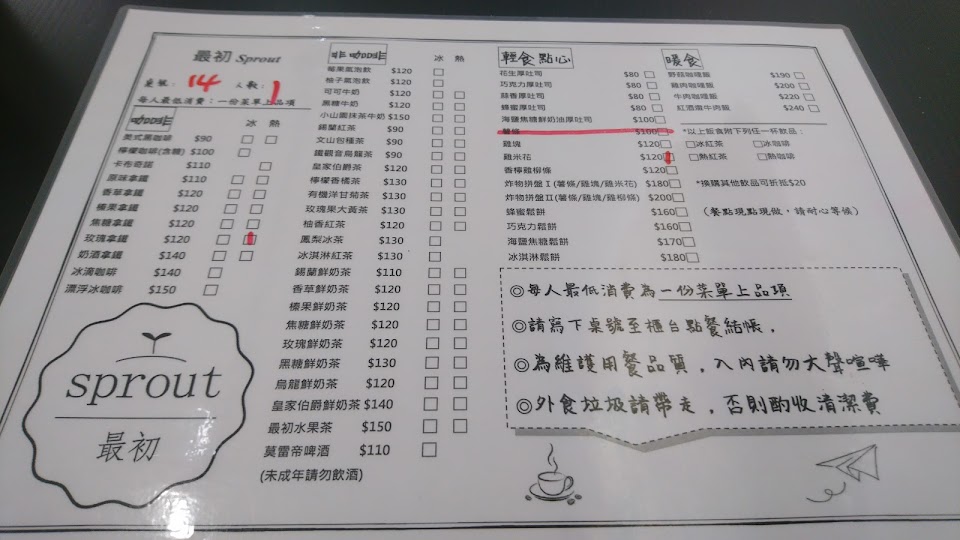 最初 Sprout
桌號: 14 人數: 1
每人最低消費:一份菜單上品項
咖啡 冰 熱
美式黑咖啡 $90
檸檬咖啡(含糖) $100
卡布奇諾 $110
原味拿鐵 $110
香草拿鐵 $120
榛果拿鐵 $120
焦糖拿鐵 $120
玫瑰拿鐵 $120
奶酒拿鐵 $140
冰滴咖啡 $140
漂浮冰咖啡 $150
sprout
最初
非咖啡 冰 熱
莓果氣泡飲 $120
柚子氣泡飲 $120
可可牛奶 $120
黑糖牛奶 $120
小山園抹茶牛奶 $150
錫蘭紅茶 $90
文山包種茶 $90
鐵觀音烏龍茶 $90
皇家伯爵茶 $120
檸檬香橘茶 $130
有機洋甘菊茶 $130
玫瑰果大黃茶 $120
柚香紅茶 $120
鳳梨冰茶 $130
冰淇淋紅茶 $130
錫蘭鮮奶茶 $110
香草鮮奶茶 $120
榛果鮮奶茶 $120
焦糖鮮奶茶 $120
玫瑰鮮奶茶 $120
黑糖鮮奶茶 $130
烏龍鮮奶茶 $120
皇家伯爵鮮奶茶 $140
最初水果茶 $150
莫雷帝啤酒 $110
(未成年請勿飲酒)
輕食點心
花生厚吐司 $80
巧克力厚吐司 $80
蒜香厚吐司 $80
蜂蜜厚吐司 $80
海鹽焦糖鮮奶油厚吐司 $100
薯條 $100
雞塊 $120
雞米花 $120
香檸雞柳條 $120
炸物拼盤I(薯條/雞塊/雞米花) $180
炸物拼盤II(薯條/雞塊/雞柳條) $200
蜂蜜鬆餅 $160
巧克力鬆餅 $160
海鹽焦糖鬆餅 $170
冰淇淋鬆餅 $180
暖食
野菇咖哩飯 $190
雞肉咖哩飯 $200
牛肉咖哩飯 $220
紅酒燉牛肉飯 $240
*以上飯食附下列任一杯飲品:
冰紅茶 冰咖啡
熱紅茶 熱咖啡
*換購其他飲品可折抵$20
(餐點現點現做,請耐心等候)
◎每人最低消費為一份菜單上品項
◎請寫下桌號至櫃台點餐結帳,
◎為維護用餐品質,入內請勿大聲喧嘩
◎外食垃圾請帶走,否則酌收清潔費